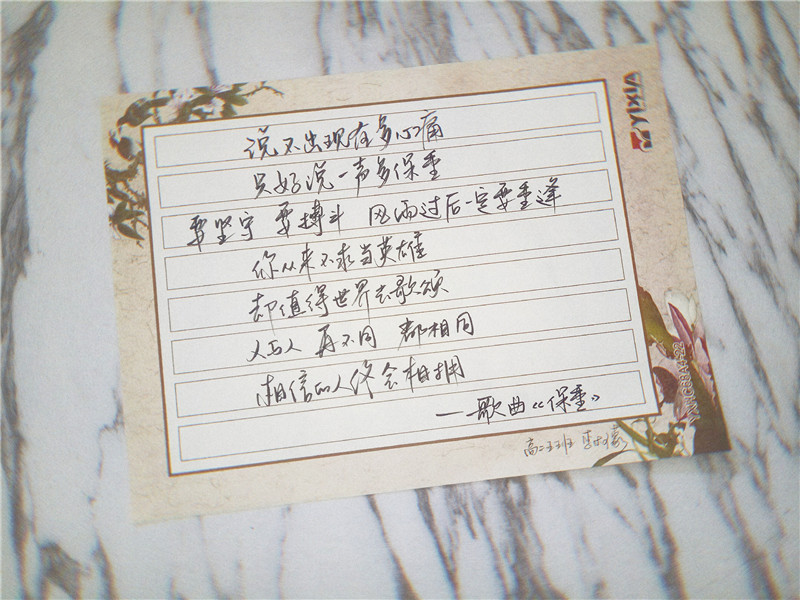 说不出现在多心痛
只好说一声多保重
要坚守 要搏斗 风雨过后一定要重逢
你从来不求当英雄
却值得世界去歌颂
人与人 再不同 都相同
相信的人终会相拥
——歌曲《保重》
高二五班
YIXIN